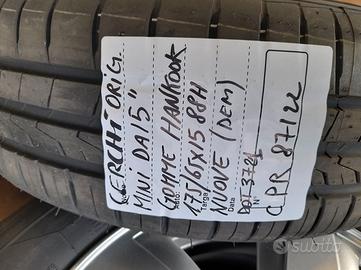 CERCHI ORIG.
MINI DA 15"
GOMME HANKOOK
175/65X15 88H
NUOVE (DEM)
DOT 3721
CPR 87122
Auto:
Targa
Data
N°
subito